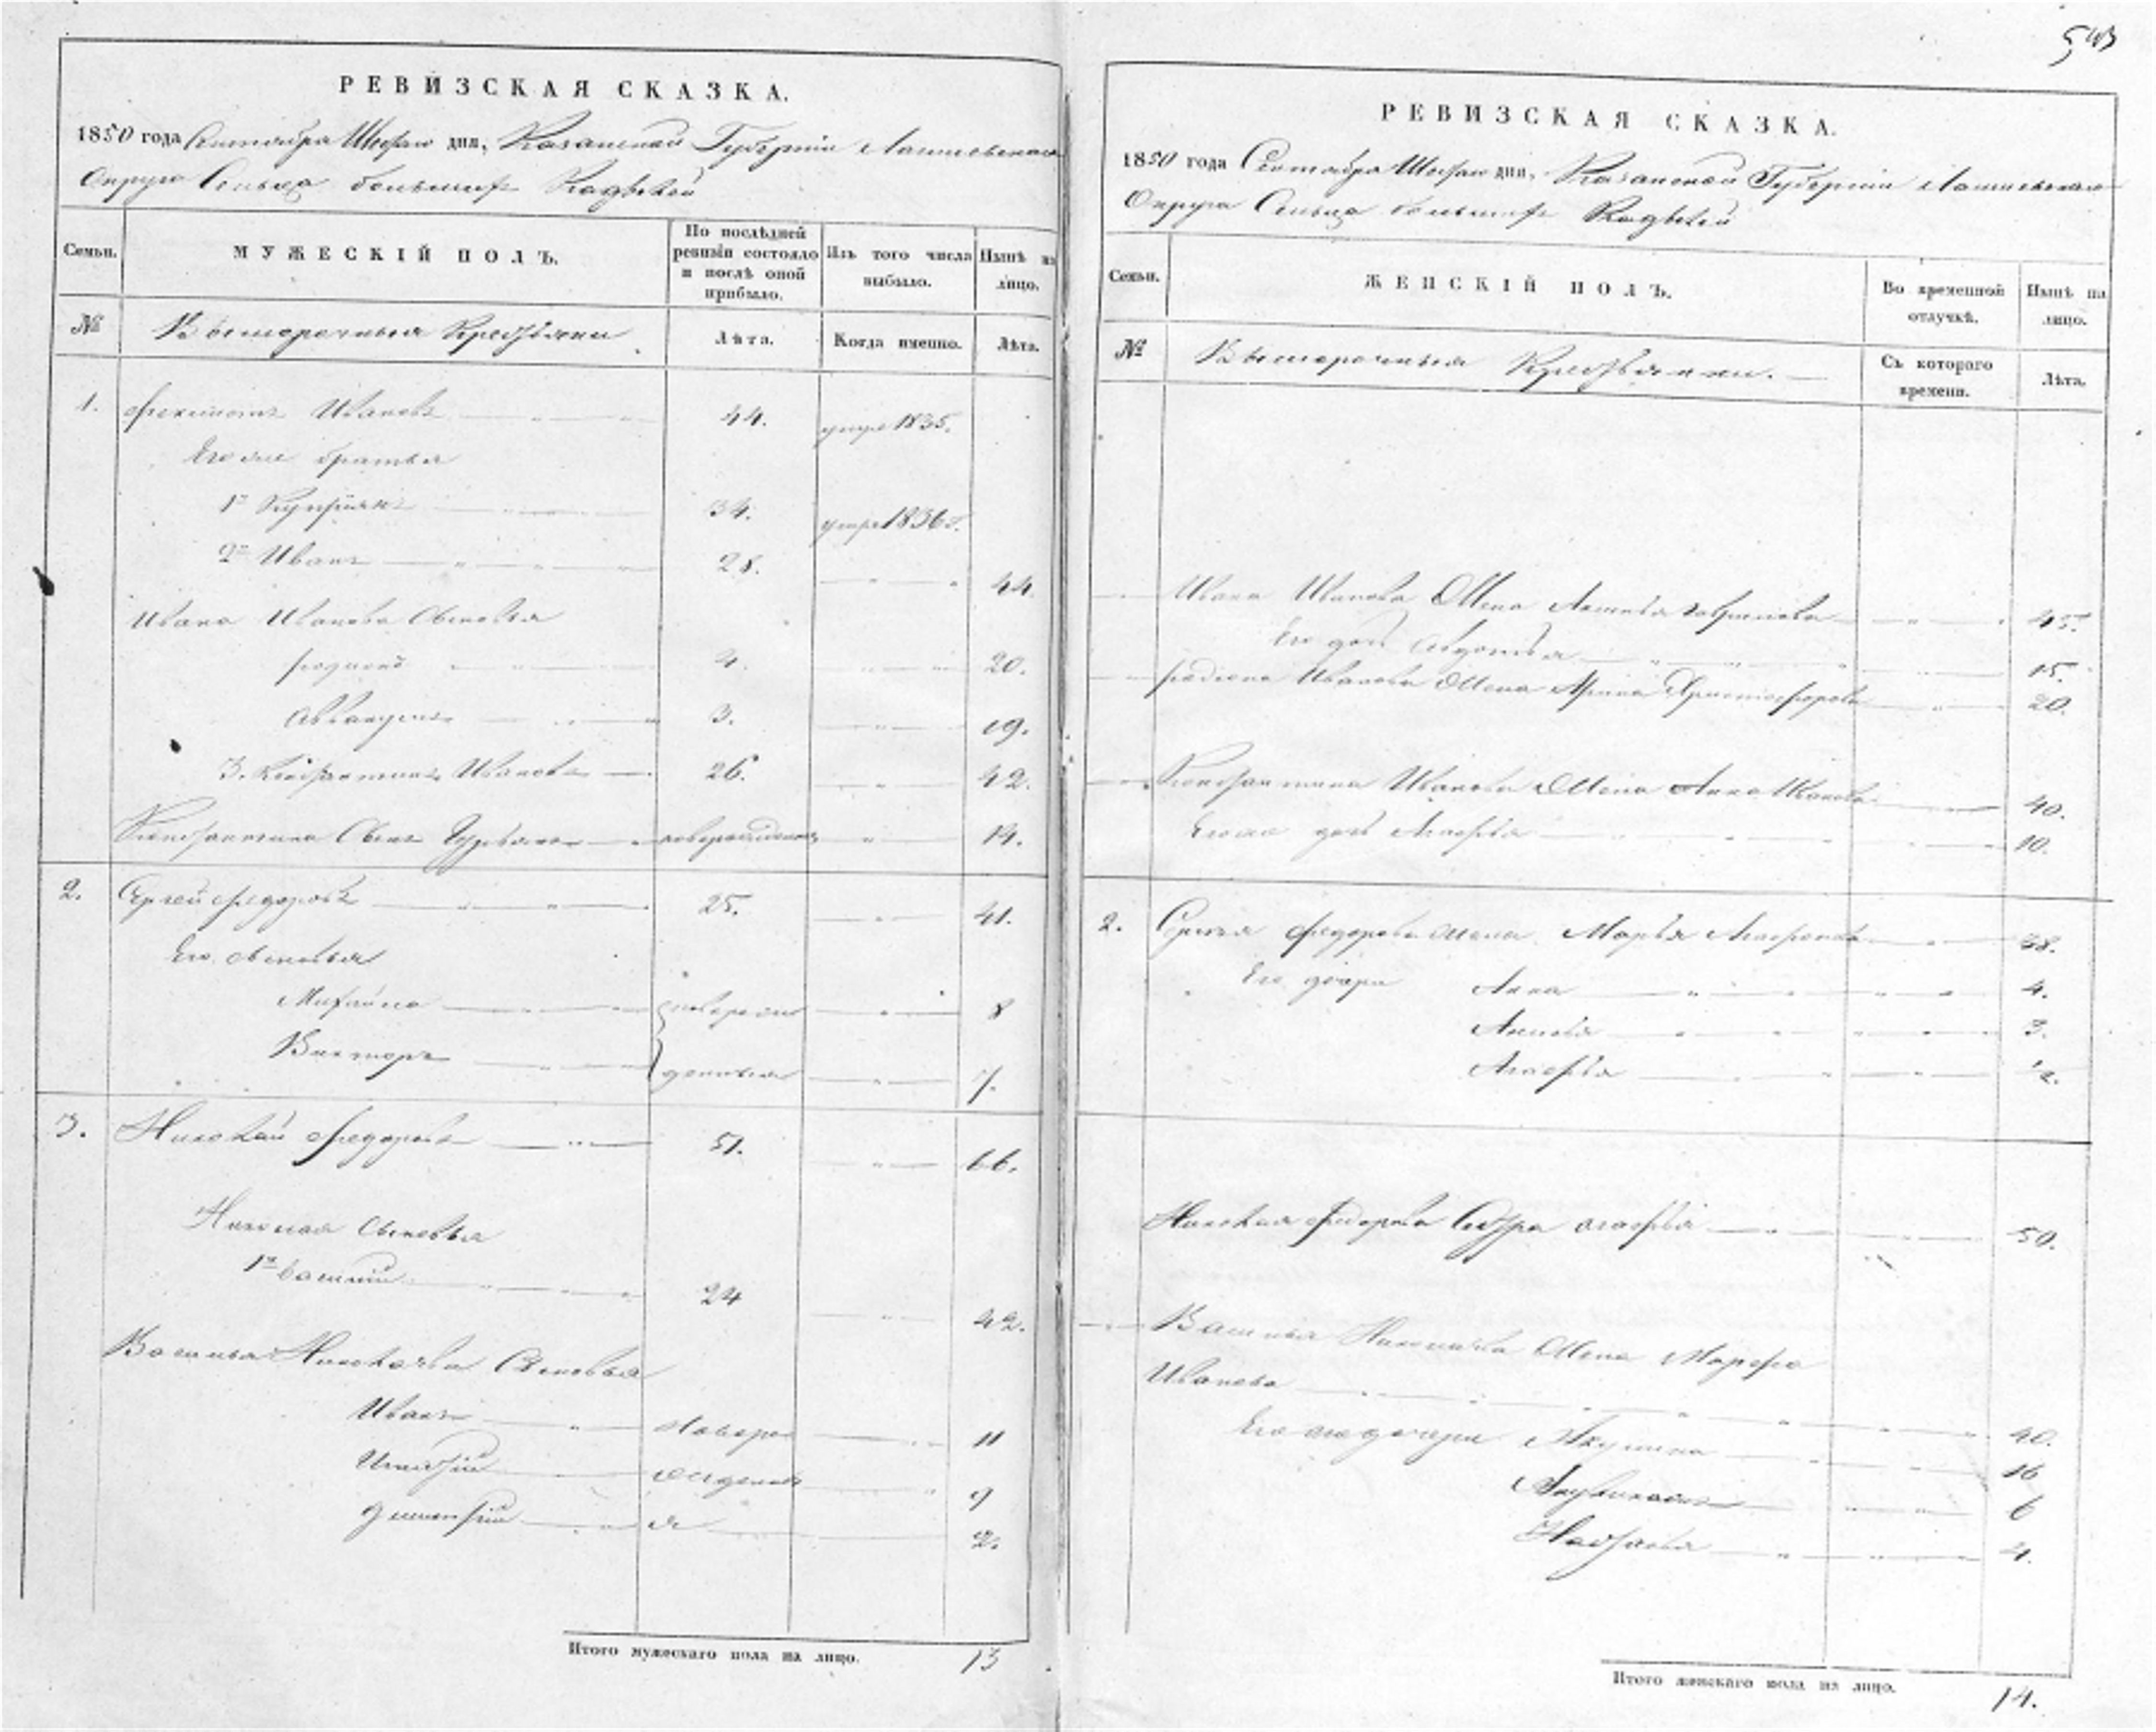 543
РЕВИЗСКАЯ СКАЗКА.
1850 года Сентября дня, Казанской Губернии Лаишевскаго
Округа Сельца
Семьи.
МУЖЕСКІЙ ПОЛЪ.
По послѣдней ревизіи состояло и послѣ оной прибыло.
Изъ того числа выбыло.
Нынѣ на лицо.
№
Крестьяне
Лѣта.
Когда именно.
Лѣта.
1. Ивановъ 44. умре 1835.
Его же братья
1й Купріянъ 34. умре 1836.
2й Иванъ 28. 44.
Ивана Иванова Сыновья
Родионъ 4. 20.
Аввакумъ 3. 19.
3. Константинъ Ивановъ 26. 42.
Константина Сынъ новорожденъ 14.
2. Сергей Федоровъ 25. 41.
Его сыновья
Михайла новорож 8
Викторъ денныя 7.
3. Николай Федоровъ 51. 66.
Николая Сыновья
1й Василий 24 42.
Василья Николаева Сыновья
Иванъ новоро 11
Игнатій жденны 9
Дементій я 2.
Итого мужескаго пола на лицо. 13
РЕВИЗСКАЯ СКАЗКА.
1850 года Сентября дня, Казанской Губернии Лаишевскаго
Округа Сельца
Семьи.
ЖЕНСКІЙ ПОЛЪ.
Во временной отлучкѣ.
Нынѣ на лицо.
№
Крестьянки.
Съ котораго времени.
Лѣта.
Ивана Иванова Жена Гаврилова 45.
Его дочь Авдотья 15.
Родиона Иванова Жена Арина Христофорова 20.
Константина Иванова Жена Анна Иванова 40.
Его же дочь Агафья 10.
2. Сергея Федорова жена Марья Агафонова 38.
Его дочери Анна 4.
Анисья 3.
Агафья 1/2.
Николая Федорова Сестра Агафья 50.
Василья Николаева Жена Марфа
Иванова 40.
Его же дочери Акулина 16
6
Настасья 4.
Итого женскаго пола на лицо. 14.